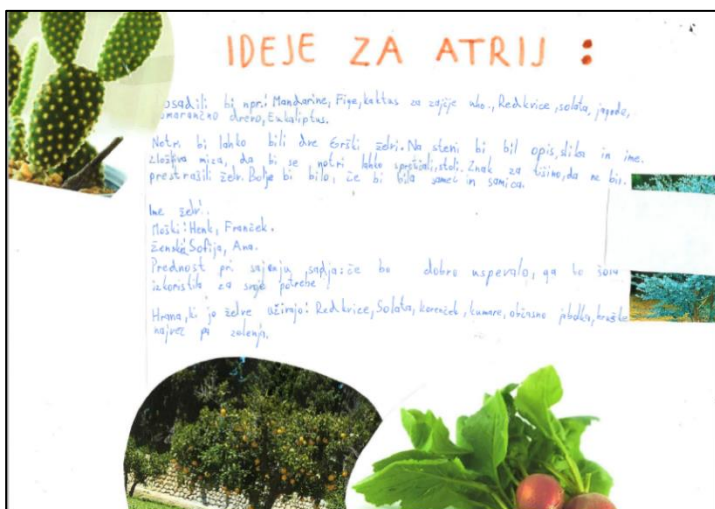 IDEJE ZA ATRIJ :
osadili bi npr.: Mandarine, Fige, kaktus za zajčje uho., Redkvice, solata, jagode,
omarančno drevo, Eukaliptus.
Notri bi lahko bili dve Grški želvi. Na steni bi bil opis, slika in ime.
zložljiva miza, da bi se notri lahko sprostili, stoli. Znak za tišino, da ne bi
prestrašili želv. Bolje bi bilo, če bi bila samec in samica.
Ime želv:
Moški: Henk, Franček.
Ženska: Sofija, Ana.
Prednost pri sajenju sadja: če bo dobro uspevalo, ga bo šola
izkoristila za svoje potrebe
Hrana, ki jo želve uživajo: Redkvice, Solata, korenček, kumare, občasno jabolka, hruške
največ pa zelenja.